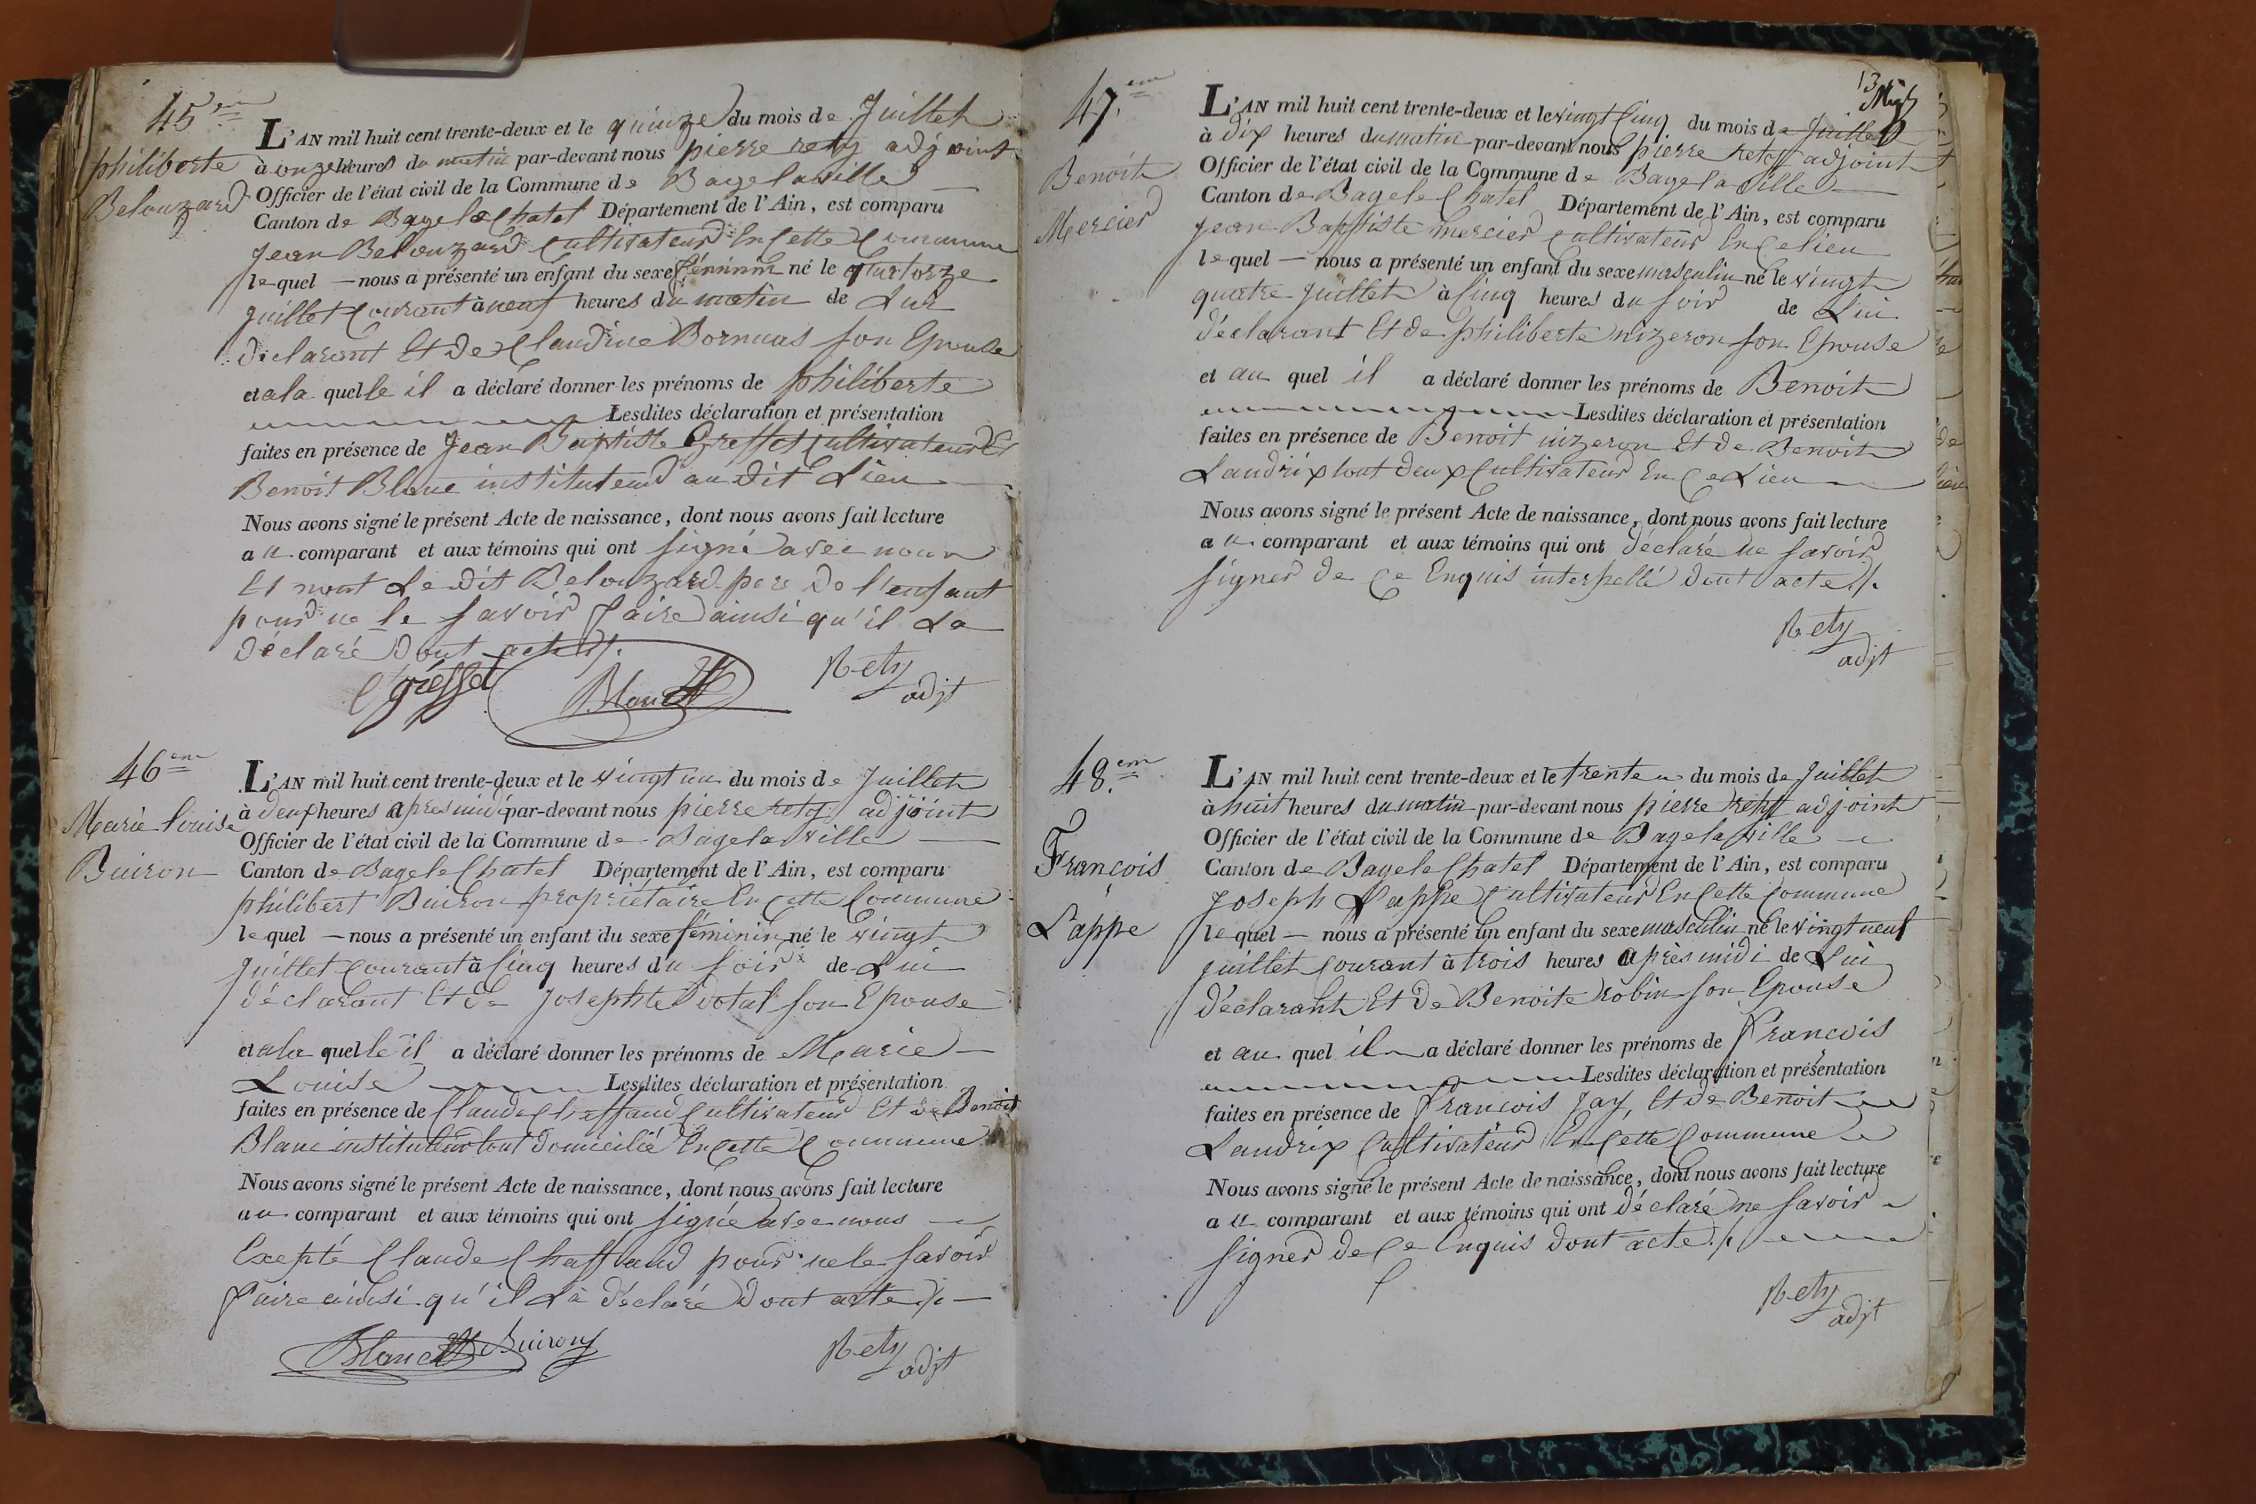 45em
philiberte
Belouzard
L'AN mil huit cent trente-deux et le quinze du mois de Juillet
à onze heures du matin par-devant nous pierre rety adjoint
Officier de l'état civil de la Commune de Bagelaville
Canton de Bagelechatel Département de l'Ain, est comparu
Jean Belouzard cultivateur En Cette Commune
lequel — nous a présenté un enfant du sexe féminin né le quatorze
juillet courant à neuf heures du matin de Lui
déclarant Et de Claudine Bornuas son Epouse
et a la quelle il a déclaré donner les prénoms de philiberte
Lesdites déclaration et présentation
faites en présence de Jean Baptiste Greffet cultivateur Et
Benoit Blanc instituteur au dit Lieu
Nous avons signé le présent Acte de naissance, dont nous avons fait lecture
au comparant et aux témoins qui ont signé avec nous
Et nont Le dit Belouzard pere de l'enfant
pour ne le savoir faire ainsi qu'il La
déclaré dont acte ./.
Blanc
Rety
adjt
46em
Marie Louise
Buiron
L'AN mil huit cent trente-deux et le vingt un du mois de Juillet
à deux heures apres midi par-devant nous pierre rety adjoint
Officier de l'état civil de la Commune de Bagelaville
Canton de Bagelechatel Département de l'Ain, est comparu
philibert Buiron propriétaire En Cette Commune
lequel — nous a présenté un enfant du sexe féminin né le vingt
juillet courant à Cinq heures du soir de Lui
déclarant Et de Josephte Votal son Epouse
et a la quelle il a déclaré donner les prénoms de Marie
Louise Lesdites déclaration et présentation
faites en présence de Claude Chaffaud Cultivateur Et de Benoit
Blanc instituteur tout domicilié En Cette Commune
Nous avons signé le présent Acte de naissance, dont nous avons fait lecture
au comparant et aux témoins qui ont signé avec nous
Excepté Claude Chaffaud pour ne le savoir
faire ainsi qu'il La déclaré dont acte ./.
Blanc Buiron
Rety
adjt
13
47.em
Benoit
Mercier
L'AN mil huit cent trente-deux et le vingt Cinq du mois de Juillet
à dix heures du matin par-devant nous pierre rety adjoint
Officier de l'état civil de la Commune de Bagelaville
Canton de Bagelechatel Département de l'Ain, est comparu
Jean Baptiste mercier cultivateur En Ce lieu
lequel — nous a présenté un enfant du sexe masculin né le vingt
quatre Juillet à Cinq heures du soir de Lui
déclarant Et de philiberte nizeron son Epouse
et au quel il a déclaré donner les prénoms de Benoit
Lesdites déclaration et présentation
faites en présence de Benoit nizeron Et de Benoit
Landrix tout deux Cultivateur En Ce Lieu
Nous avons signé le présent Acte de naissance, dont nous avons fait lecture
au comparant et aux témoins qui ont déclaré ne savoir
signer de Ce Enquis interpellé dont acte ./.
Rety
adjt
48.em
François
Lappe
L'AN mil huit cent trente-deux et le trente du mois de Juillet
à huit heures du matin par-devant nous pierre rety adjoint
Officier de l'état civil de la Commune de Bagelaville
Canton de Bagelechatel Département de l'Ain, est comparu
Joseph Lappe Cultivateur En Cette Commune
lequel — nous a présenté un enfant du sexe masculin né le vingt neuf
juillet courant à trois heures après midi de Lui
déclarant Et de Benoite robin son Epouse
et au quel il a déclaré donner les prénoms de François
Lesdites déclaration et présentation
faites en présence de François Jay, Et de Benoit
Landrix Cultivateur En Cette Commune
Nous avons signé le présent Acte de naissance, dont nous avons fait lecture
au comparant et aux témoins qui ont déclaré ne savoir
signer de Ce Enquis dont acte ./.
Rety
adjt